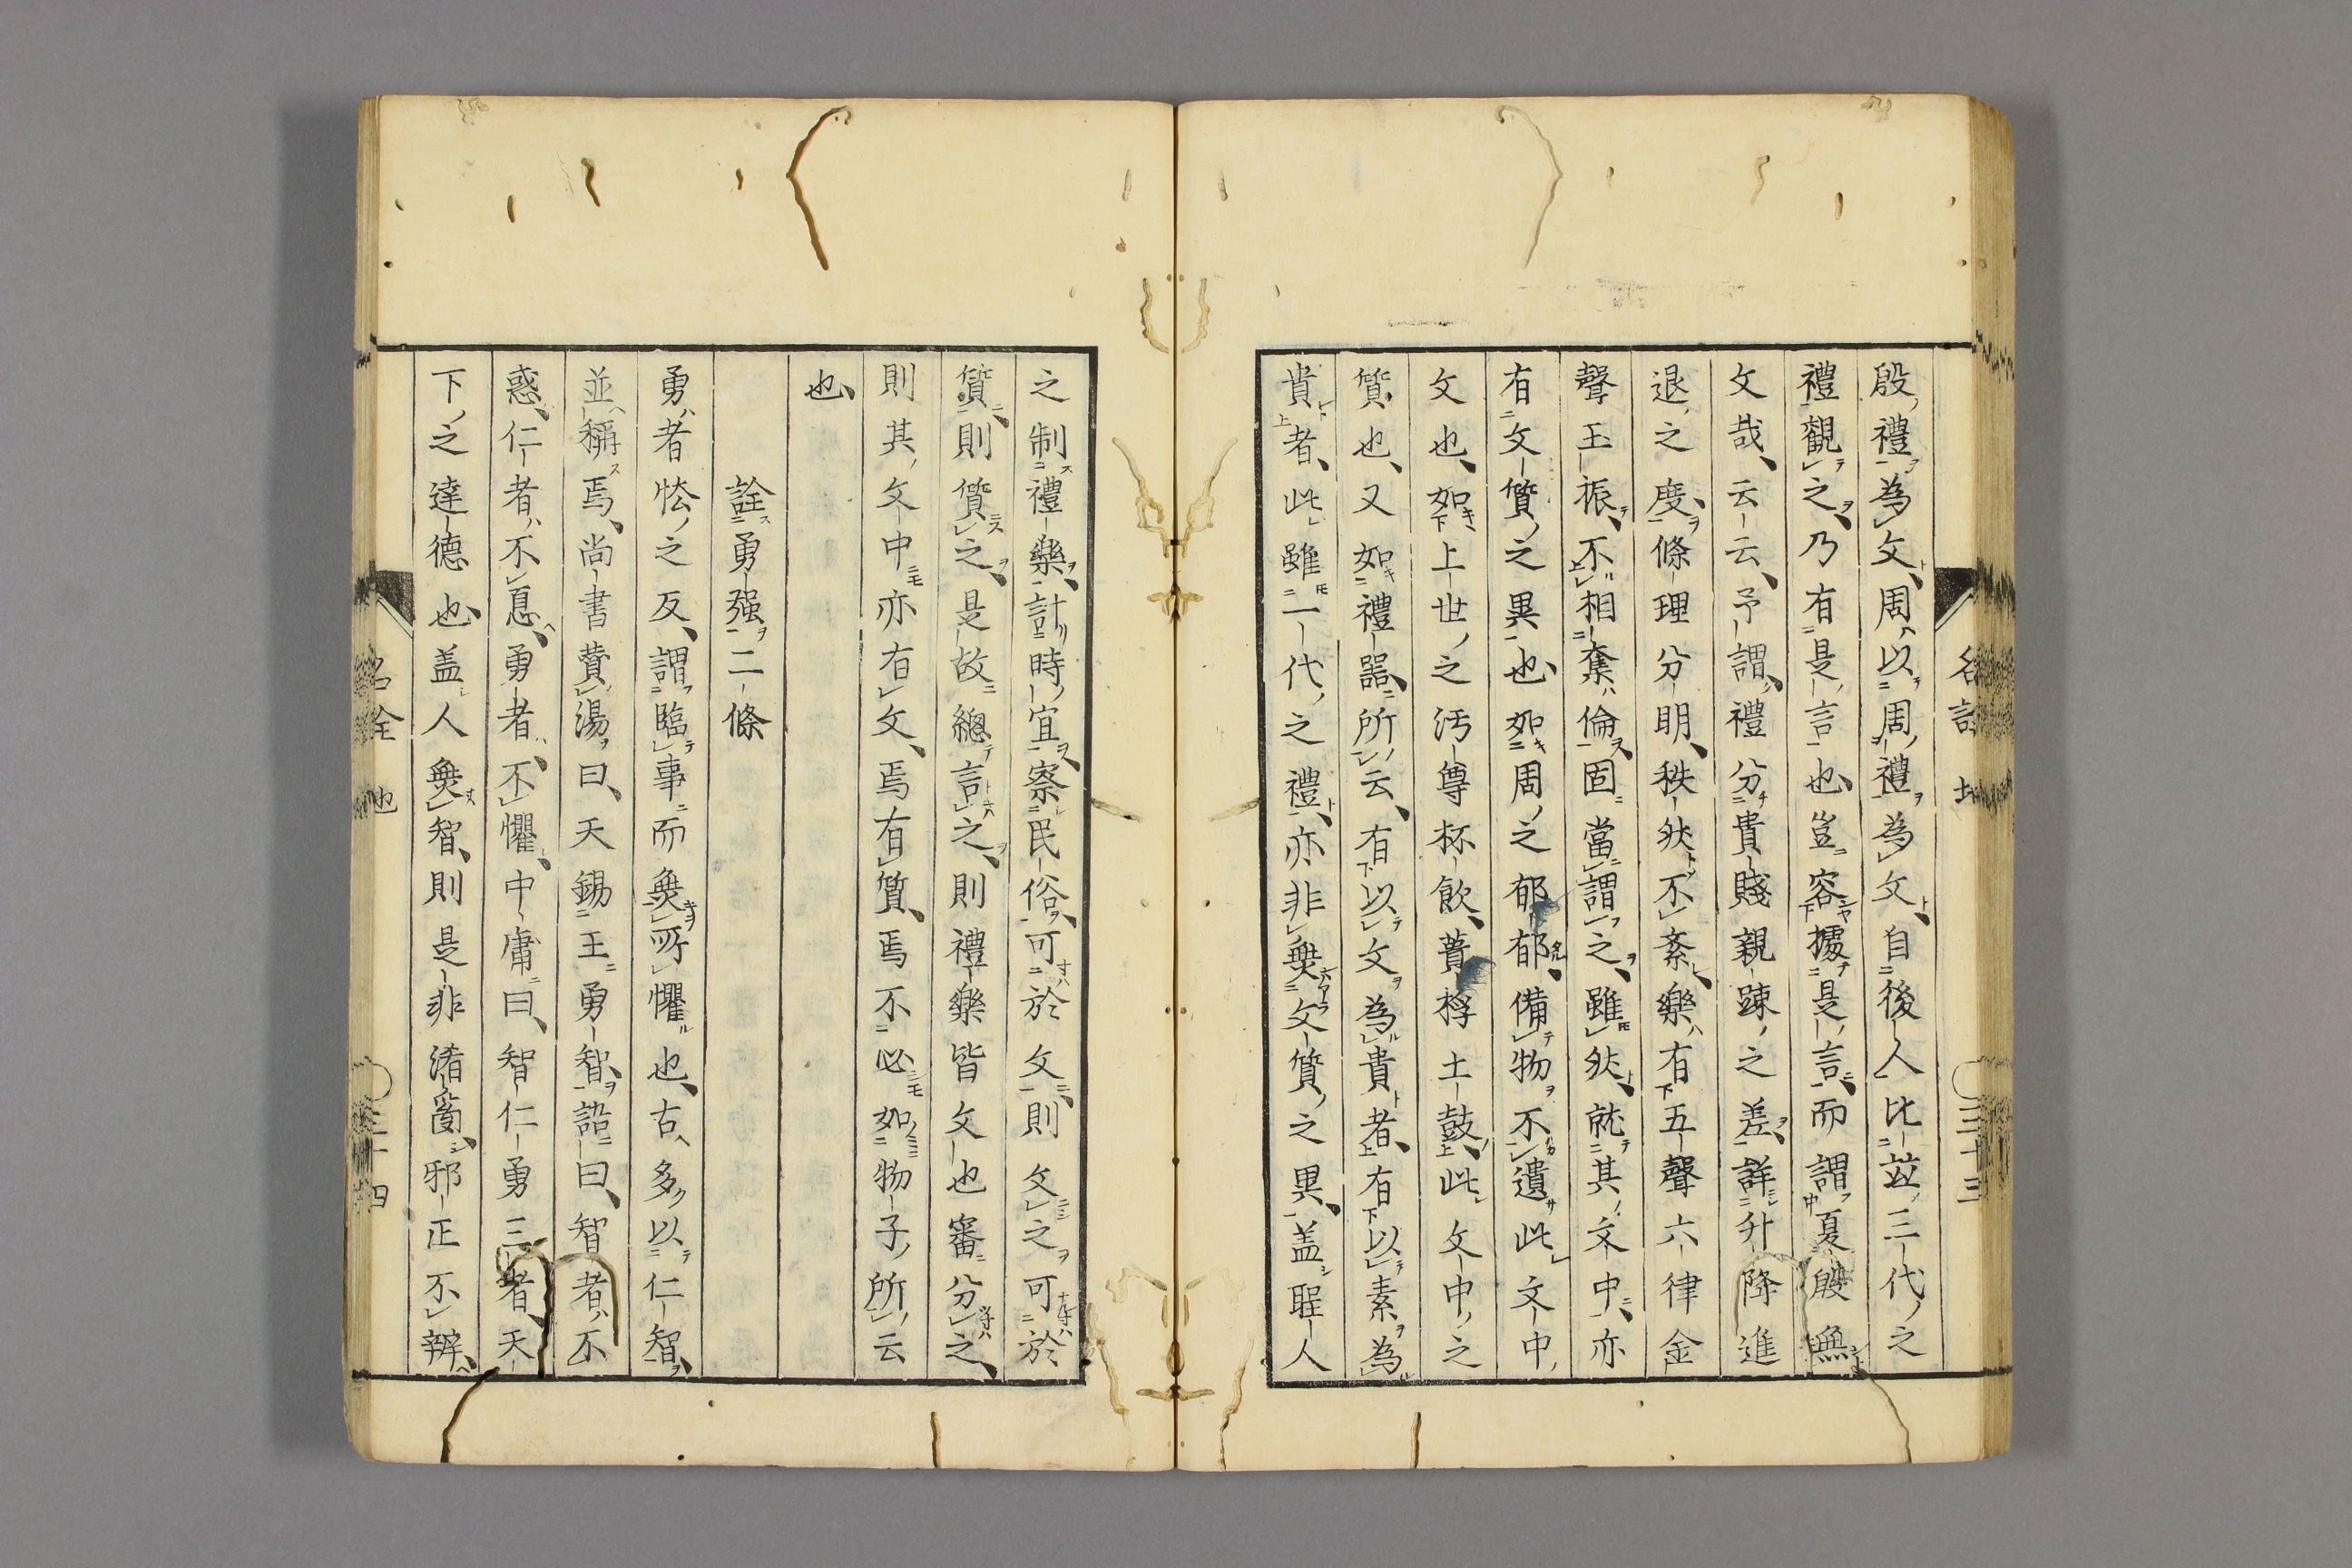 殷禮為文、周以周禮為文、自後人比並三代之
禮觀之、乃有是言也、豈容據是言、而謂夏殷無
文哉、云云、予謂、禮分貴賤親踈之差、詳升降進
退之度、條理分明、秩然不紊、樂有五聲六律金
聲玉振、不相奪倫、固當謂之、雖然、就其文中、亦
有文質之異也、如周之郁郁、備物不遺、此文中
文也、如上世之汚尊杯飲、蕢桴土鼓、此文中之
質也、又如禮器所云、有以文為貴者、有以素為
貴者、此雖一代之禮、亦非無文質之異、盖聖人
之制禮樂、計時宜、察民俗、可於文、則文之、可於
質、則質之、是故總言之、則禮樂皆文也、審分之、
則其文中亦有文、焉有質、焉不必如物子所云
也、
詮勇强二條
勇者怯之反、謂臨事而無所懼也、古多以仁智、
並稱焉、尚書贊湯曰、天錫王勇智、語曰、智者不
惑、仁者不憂、勇者不懼、中庸曰、智仁勇三者、天
下之達德也、盖人無智、則是非淆亂、邪正不辨、
名詮 地
三十三
名詮 地
三十四